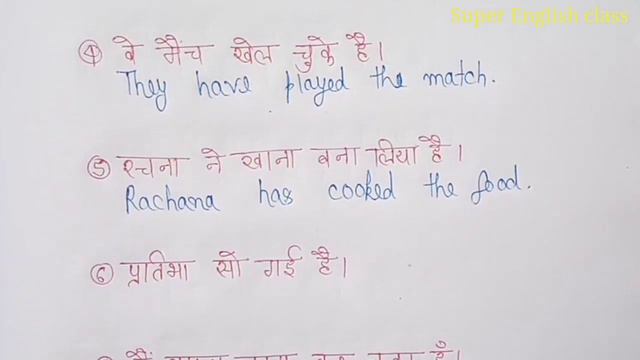 Super English class
④ वे मैच खेल चुके है।
They have played the match.
⑤ रचना ने खाना बना लिया है।
Rachana has cooked the food.
⑥ प्रतिभा सो गई है।